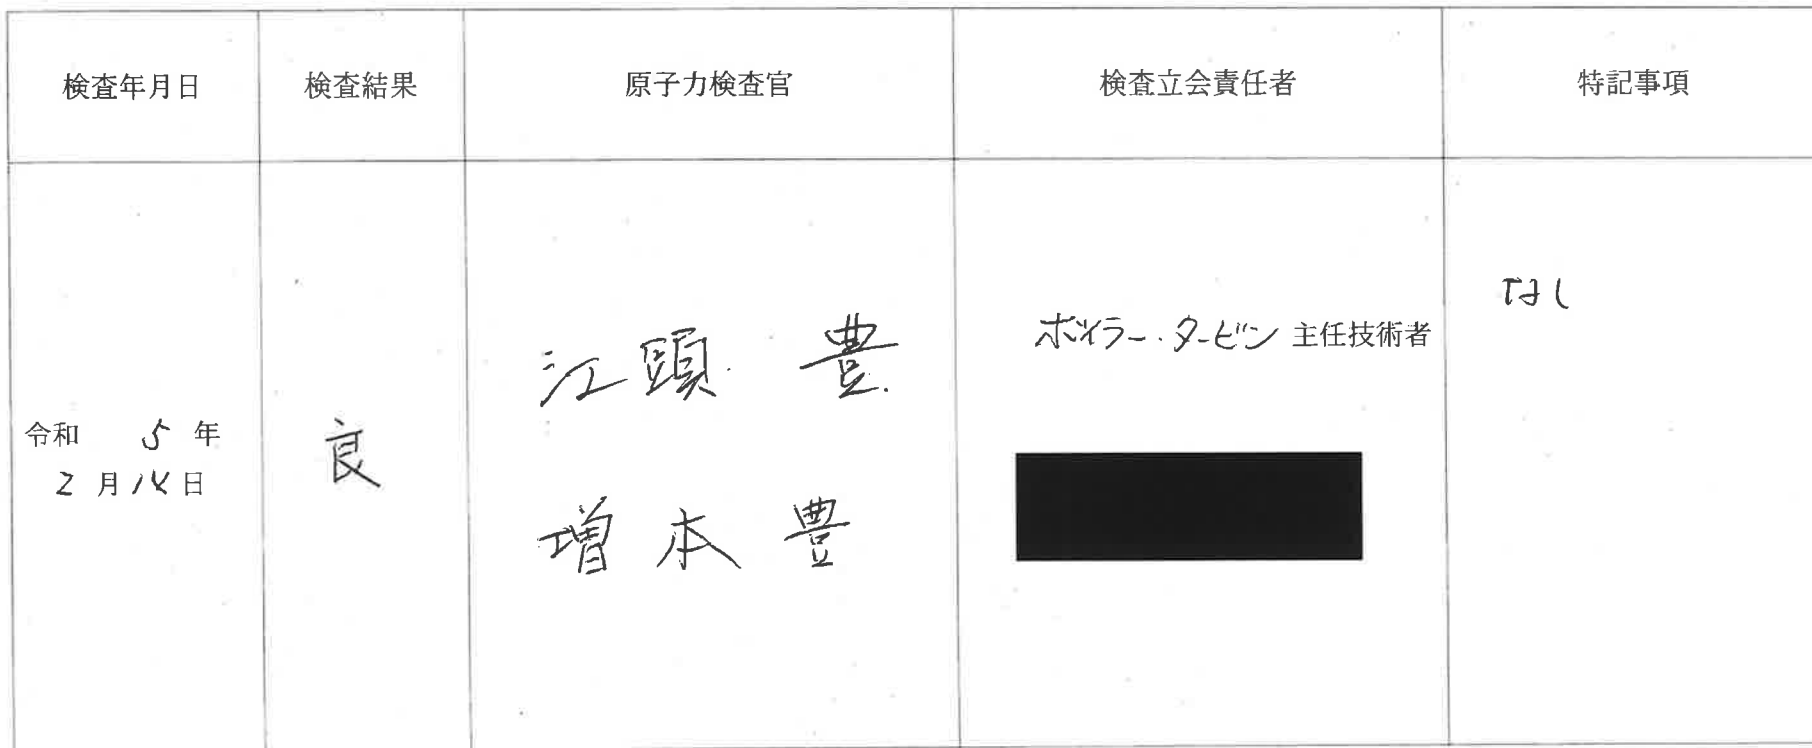 検査年月日
検査結果
原子力検査官
検査立会責任者
特記事項
令和 5 年
2 月 14 日
良
江頭 豊
増本 豊
ボイラー・タービン 主任技術者
なし